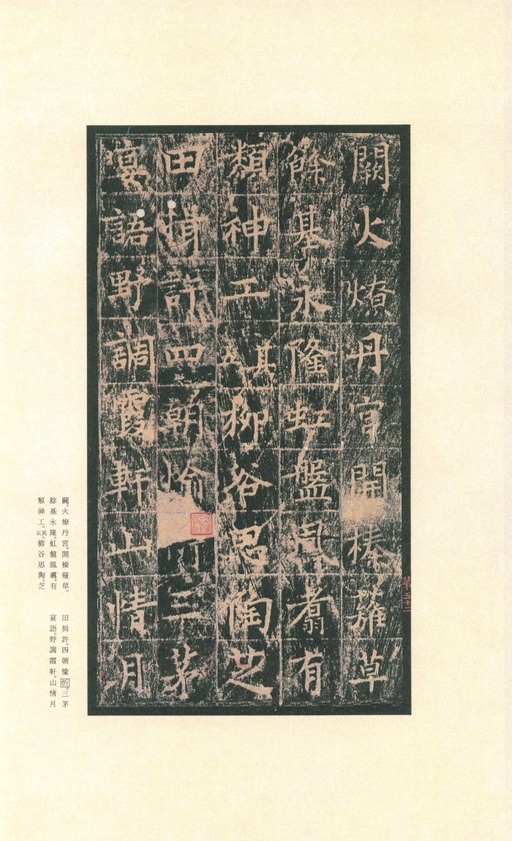 闕火燎丹宮開榛蘿草
餘基永隆虹盤鳳翥有
類神工其柳谷思陶芝
田揖許四朝愉三茅
宴語野調霞軒山情月
闕火燎丹宮開榛蘿草
餘基永隆虹盤鳳翥有
類神工其柳谷思陶芝
田揖許四朝愉三茅
宴語野調霞軒山情月